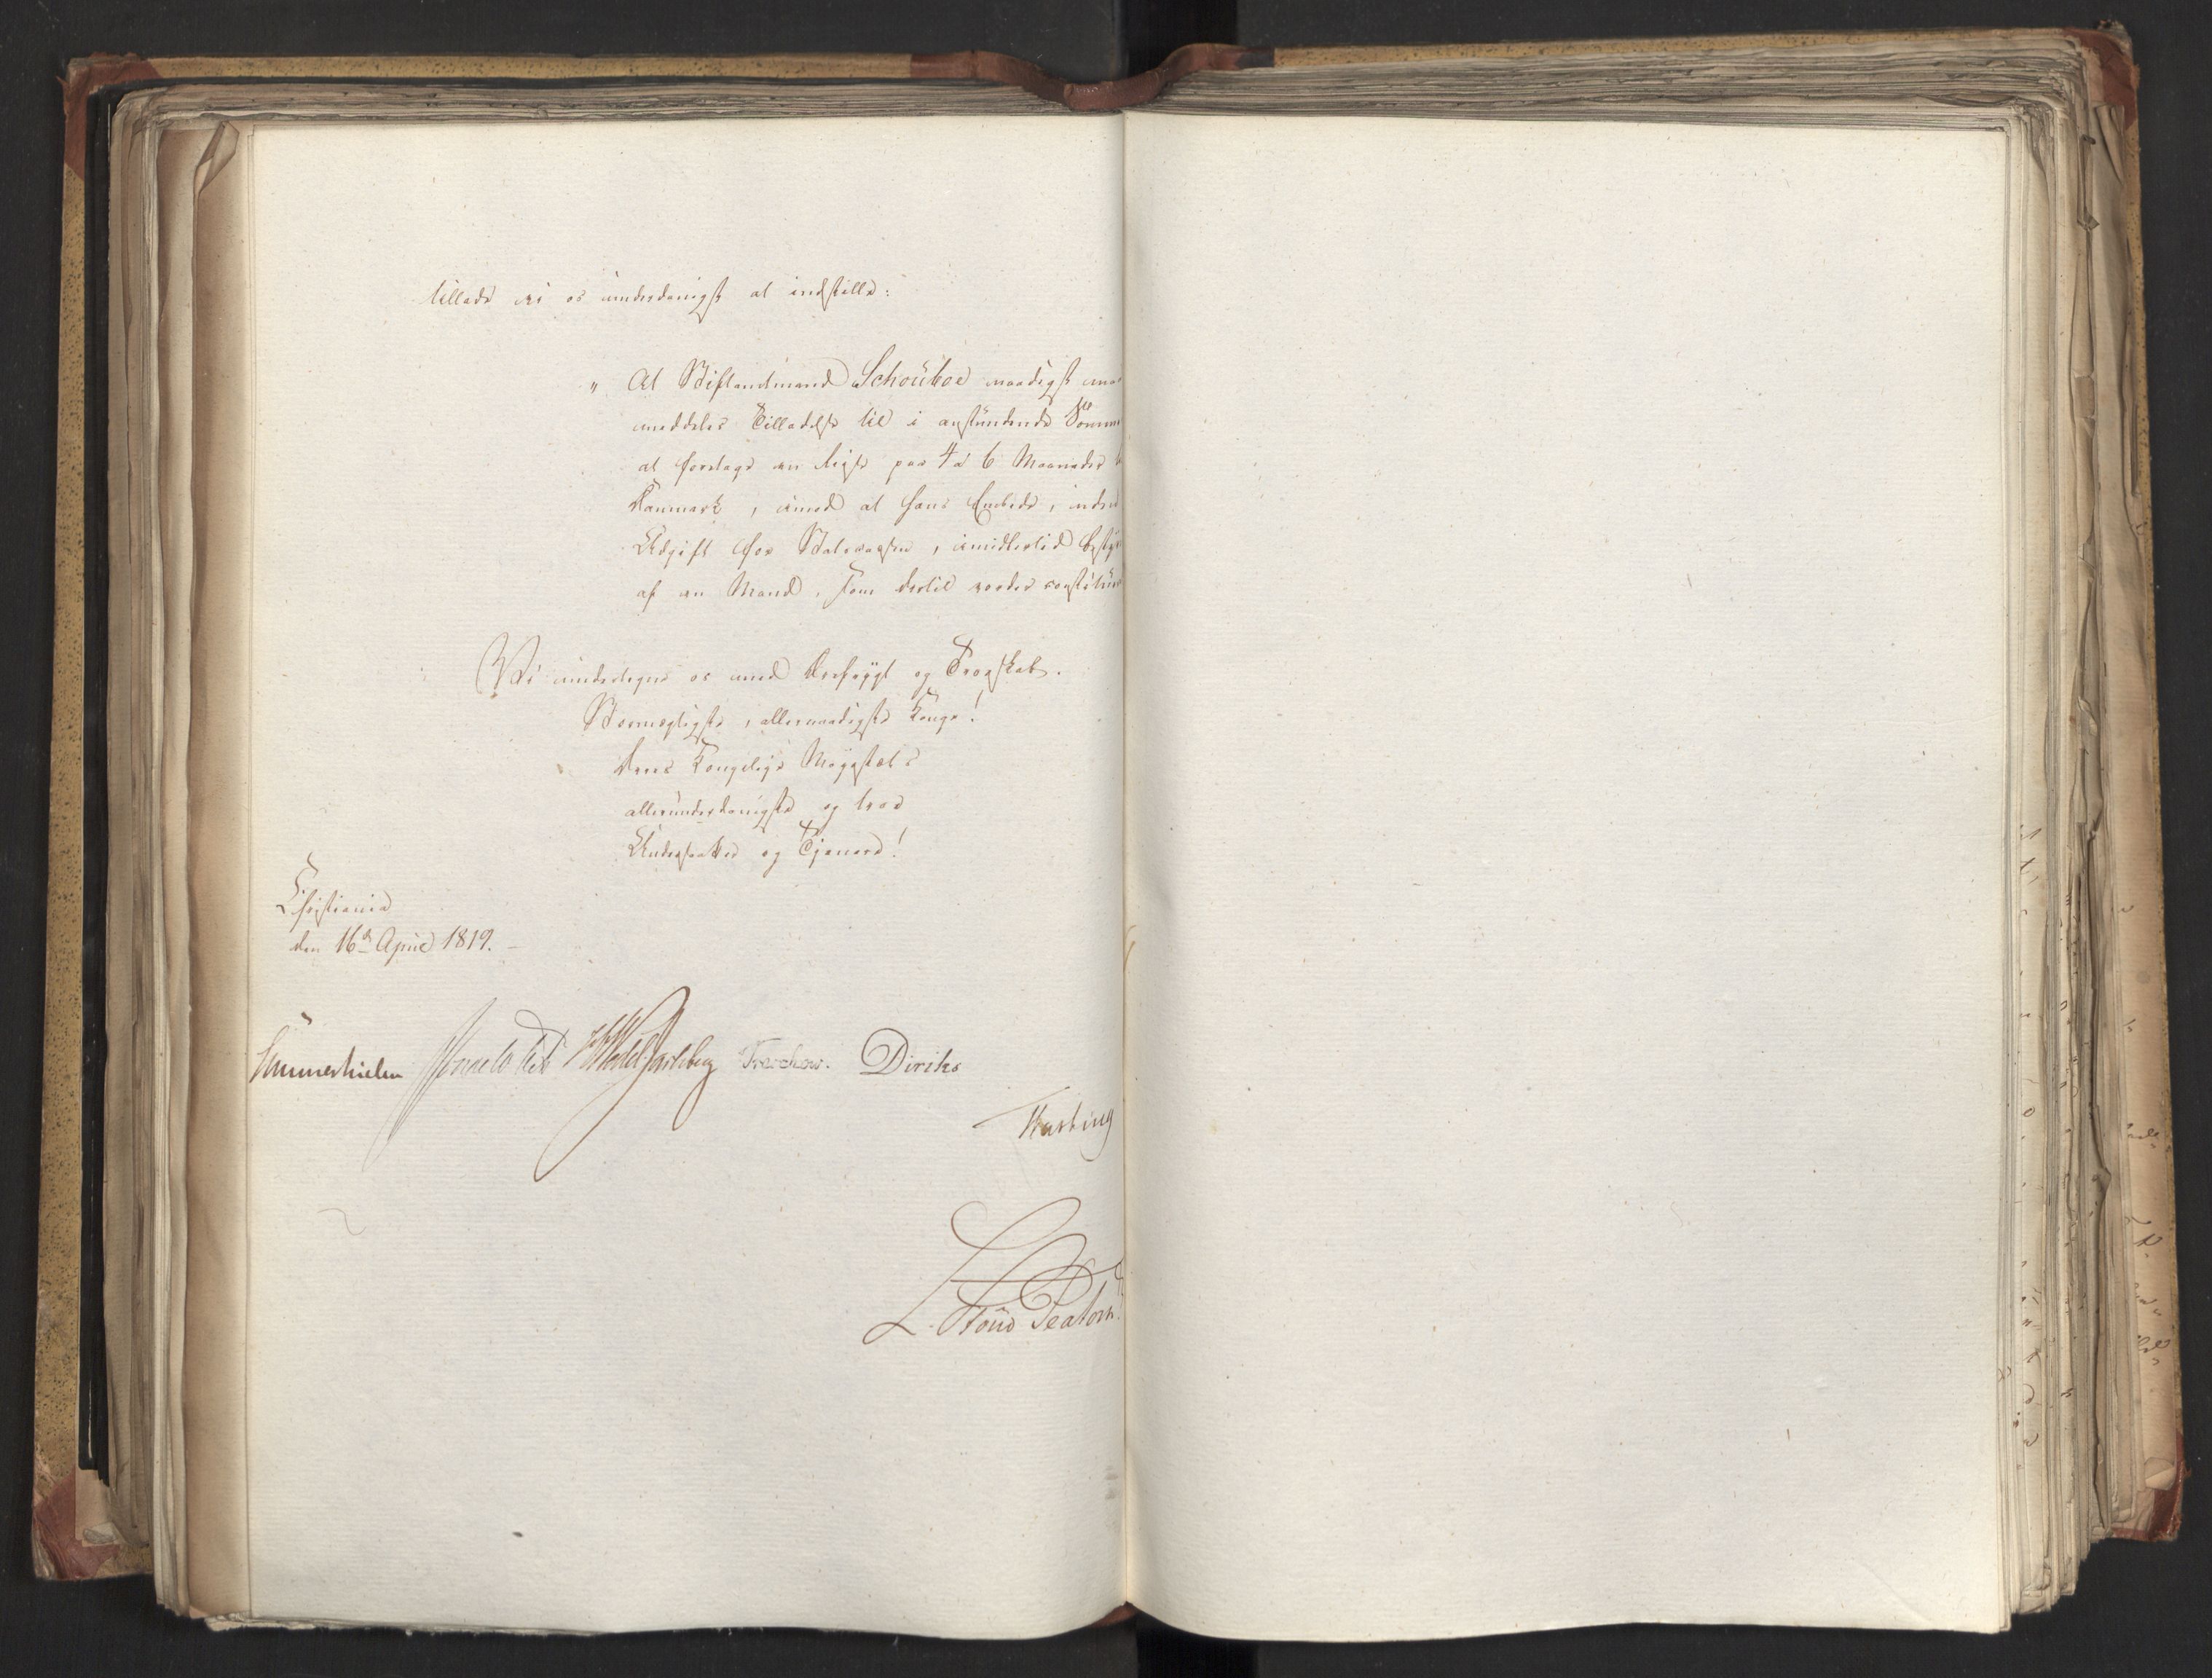 tillade vi os underdanigst at indstille:
„ At Stiftamtmand Schouboe naadigst maa
meddeles Tilladelse til i anstundende Somme
at foretage en Reise paa 4 a 6 Maaneder
Danmark, imod at hans Embede, uden
Udgift for Statscassen, imidlertid besty
af en Mand, som dertil vorder constitu
Vi undertegne os med Ærefrygt og Troeskab.
Stormægtigste, allernaadigste Konge!
Deres Kongelige Majestæts
allerunderdanigste og troe
Undersaatter og Tjenere!
Christiania
den 16de April 1819.
Sommerhielm Wedel Jarlsberg Treschow. Diriks
Fasting
L. Stoud Platou